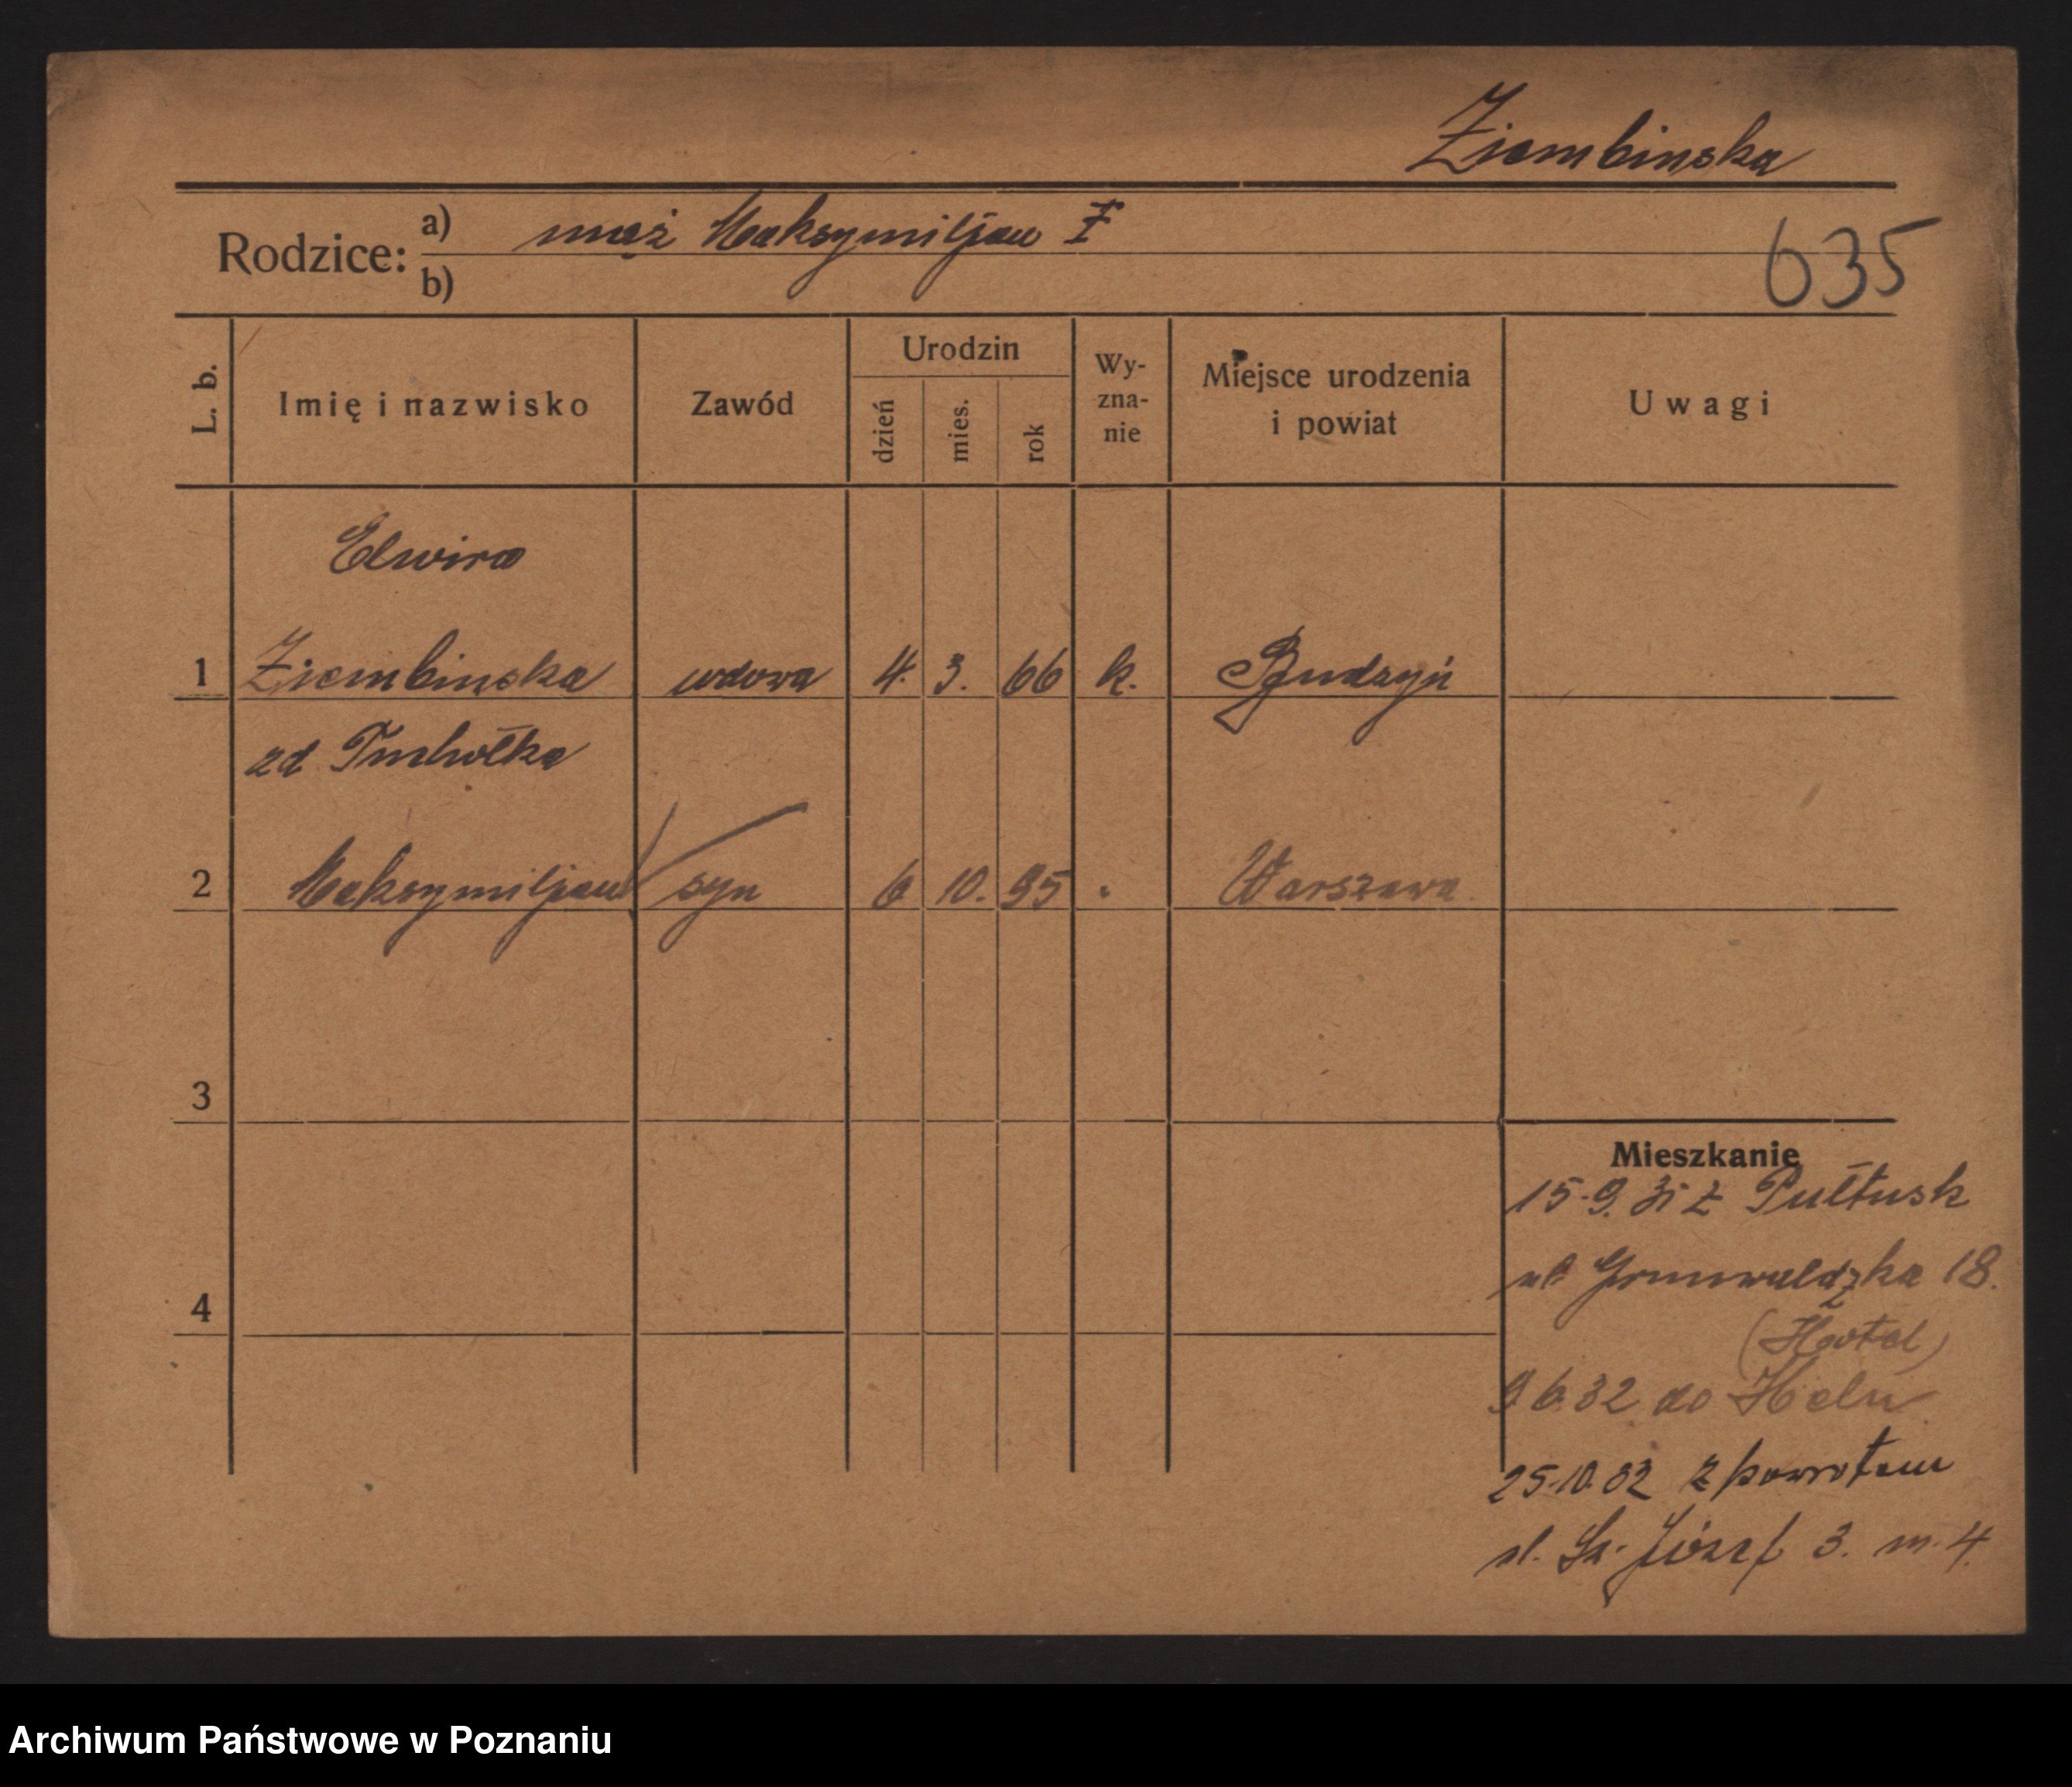 Ziembinska
Rodzice: a) mąż Maksymiljan Z
b)
635
L. b.
Imię i nazwisko
Zawód
Urodzin
dzień
mies.
rok
Wy-
zna-
nie
Miejsce urodzenia
i powiat
Uwagi
Elwira
1 Ziembinska wdowa 4. 3. 66 k. Budzyń
zd Tuchołka
2 Maksymiljan syn 6 10. 95 " Warszawa
3
4
Mieszkanie
15.9.31 z Pułtusk
ul Grunwaldzka 18.
(Hotel)
9.6.32 do Helu
25.10.32 z powrotem
ul. Św. Józef 3. m. 4.
Archiwum Państwowe w Poznaniu